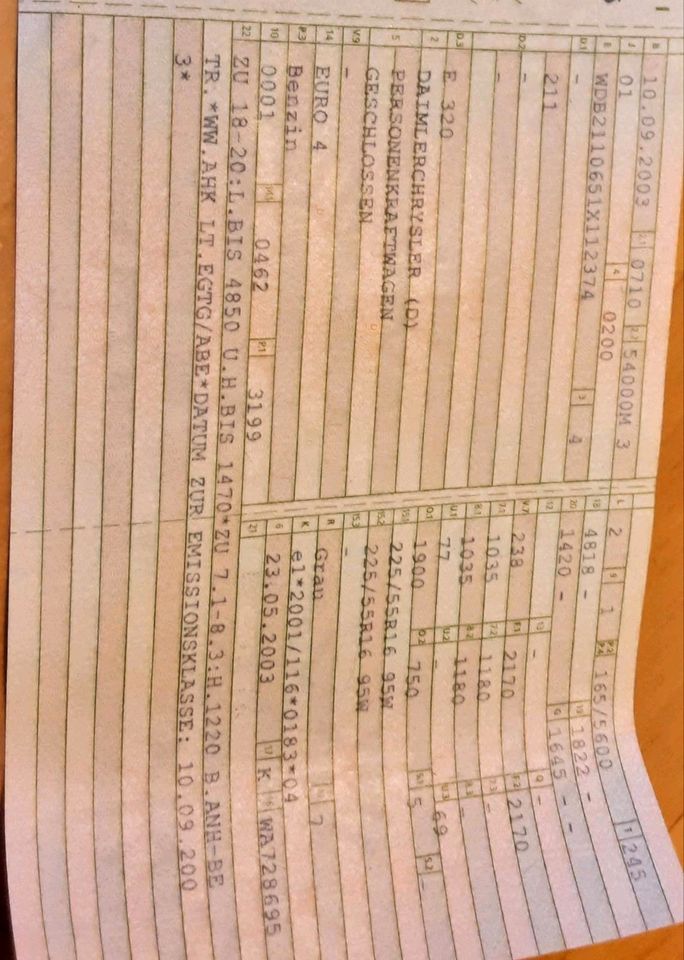 B 10.09.2003 2.1 0710 2.2 54000M 3
J 01 4 0200
E WDB2110651X112374 3 4
D.1 -
211
D.2 -
-
D.3 E 320
2 DAIMLERCHRYSLER (D)
5 PERSONENKRAFTWAGEN
GESCHLOSSEN
V.9 -
14 EURO 4
P.3 Benzin
10 0001 14.1 0462 P.1 3199
L 2 9 1 P.2 P.4 165/5600 T 245
18 4818 - 19 1822 -
20 1420 - G 1645 - -
12 13 - Q -
V.7 238 F.1 2170 F.2 2170
7.1 1035 7.2 1180 7.3 -
8.1 1035 8.2 1180 8.3 -
U.1 77 U.2 - U.3 69
O.1 1900 O.2 750 S.1 5 S.2 -
15.1 225/55R16 95W
15.2 225/55R16 95W
15.3 -
R Grau 11 7
K e1*2001/116*0183*04
6 23.05.2003 17 K 16 WA728695
21
22 ZU 18-20:L.BIS 4850 U.H.BIS 1470*ZU 7.1-8.3:H.1220 B.ANH-BE
TR.*WW.AHK LT.EGTG/ABE*DATUM ZUR EMISSIONSKLASSE: 10.09.200
3*